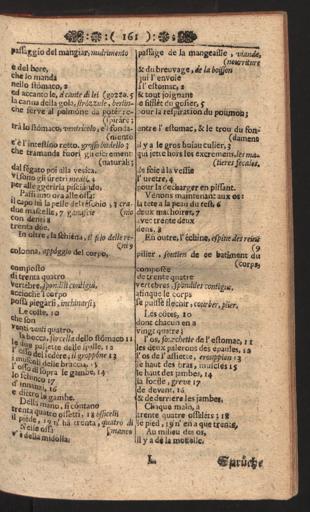 ( 161 ):
passaggio del mangiar, nudrimento
e del bere,
che lo manda
nello stomaco, 2
ed accanto le,
la canna della gola,
che serve al polmone da poter re-
(spirare;
trà lo stomaco, ventricolo, e'l fonda-
(niento
e'l'intestino retto, grosso budello;
che tramanda fuori gli escrementi
(naturali;
dal fegato poi alla vesica.
vi sono gli ureteri
per alleggerirla pisciando.
Passiamo ora alle ossa:
il capo hà la pelle del teschio, 3
due mascelle, 7 ganascie
con denti e
trenta due.
In oltre la schiena, il filo delle re-
(ni 9
colonna, appoggio del corpo,
composto
di trenta quatro
vertebre, spondili contigui,
acciochè l corpo
possa piegarsi, inchinarsi;
Le coste, 10
che son
venti quatro,
la bocca, forcella dello stomaco 11
le due palette delle spalle, 12
l' osso del sedere, il groppone 13
i muscoli delle braccia, 15
l' osso di sopra le gambe, 14
lo schinco 17
d' innanzi, 16
e dietro la gambe.
Della mano, si contano
trenta quatro ossetti, 18 ossicelli
il piede, 19 n' hà trenta, quatro di
Nelle ossi (manco
v' è della midolla:
passage de la mangeaille, viande,
(nourriture
& du breuvage, de la boisson
qui l'envoie
à l'estomac, 2
& tout joignant
le sifflet du gosier, 5
pour la respiration du poumon;
entre l' estomac, & le trou du fon-
(dament
il y a le gros boiau culier; 3
qui jette hors les excremens, les ma-
(tieres fecales.
du foie à la vessie
l' uretre, 4
pour la decharger en pissant.
Vénons maintenant aux os:
la tête a la peau du test 6
deux machoires, 7
avec trente deux
dens, 8
En outre, l' échine, espine des reins
(9
pilier, soutien de ce batiment du
(corps,
composée
de trente quatre
vertebres spondiles contigus,
afinque le corps
se puisse flechir, courber, plier.
Les côtes, 10
dont chacun en a
vingt quatre;
l' os, fourchette de l'estomac, 11
les deux palerons des épaules, 12
l'os de l' assiette, croupion 13
le haut des bras, muscles 15
le haut des jambes, 14
la focile, greve 17
de devant, 16
& de derriere les jambes.
Cinqua main, a
trente quatre osselets; 18
le pied, 19 n'en a que trente,
Au milieu des os,
il y a de la moüelle.
L
Sprüche